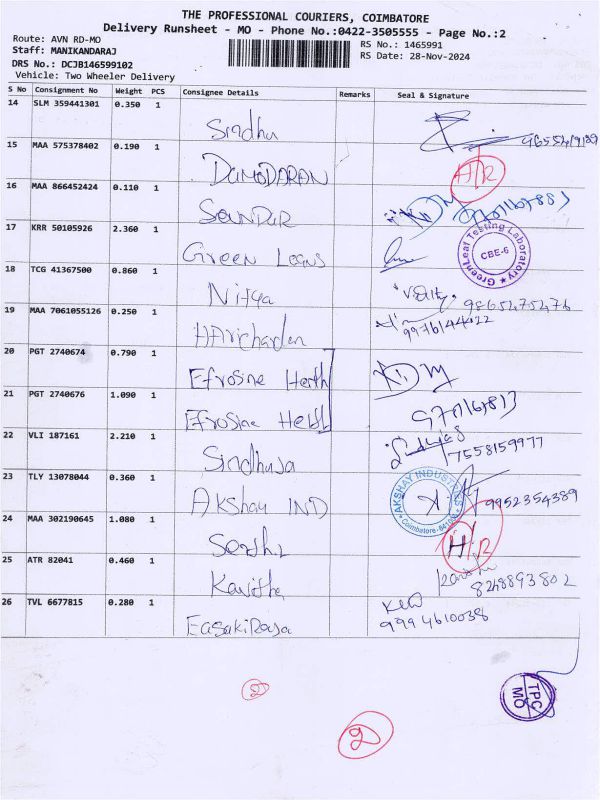 THE PROFESSIONAL COURIERS, COIMBATORE
Delivery Runsheet - MO - Phone No.:0422-3505555 - Page No.:2
Route: AVN RD-MO
Staff: MANIKANDARAJ
DRS No.: DCJB146599102
Vehicle: Two Wheeler Delivery
RS No.: 1465991
RS Date: 28-Nov-2024
S No Consignment No Weight PCS Consignee Details Remarks Seal & Signature
14 SLM 359441301 0.350 1 Sindhu
15 MAA 575378402 0.190 1 DAMODARAN H/R
16 MAA 866452424 0.110 1
17 KRR 50105926 2.360 1 Green Leans GreenLeaf Testing Laboratory CBE-6
18 TCG 41367500 0.860 1 Nitya 9865475476
19 MAA 7061055126 0.250 1 HAricharden 9976144422
20 PGT 2740674 0.790 1 Efrosine Herth
21 PGT 2740676 1.090 1 Efrosine
22 VLI 187161 2.210 1 Sindhuja 7558159977
23 TLY 13078044 0.360 1 AKshay IND AKSHAY INDUSTRIES Coimbatore 9952354389
24 MAA 302190645 1.080 1 H/R
25 ATR 82041 0.460 1 Kavitha 8248893802
26 TVL 6677815 0.280 1 EasakiRaja 9994610038
TPC
MO
2
2